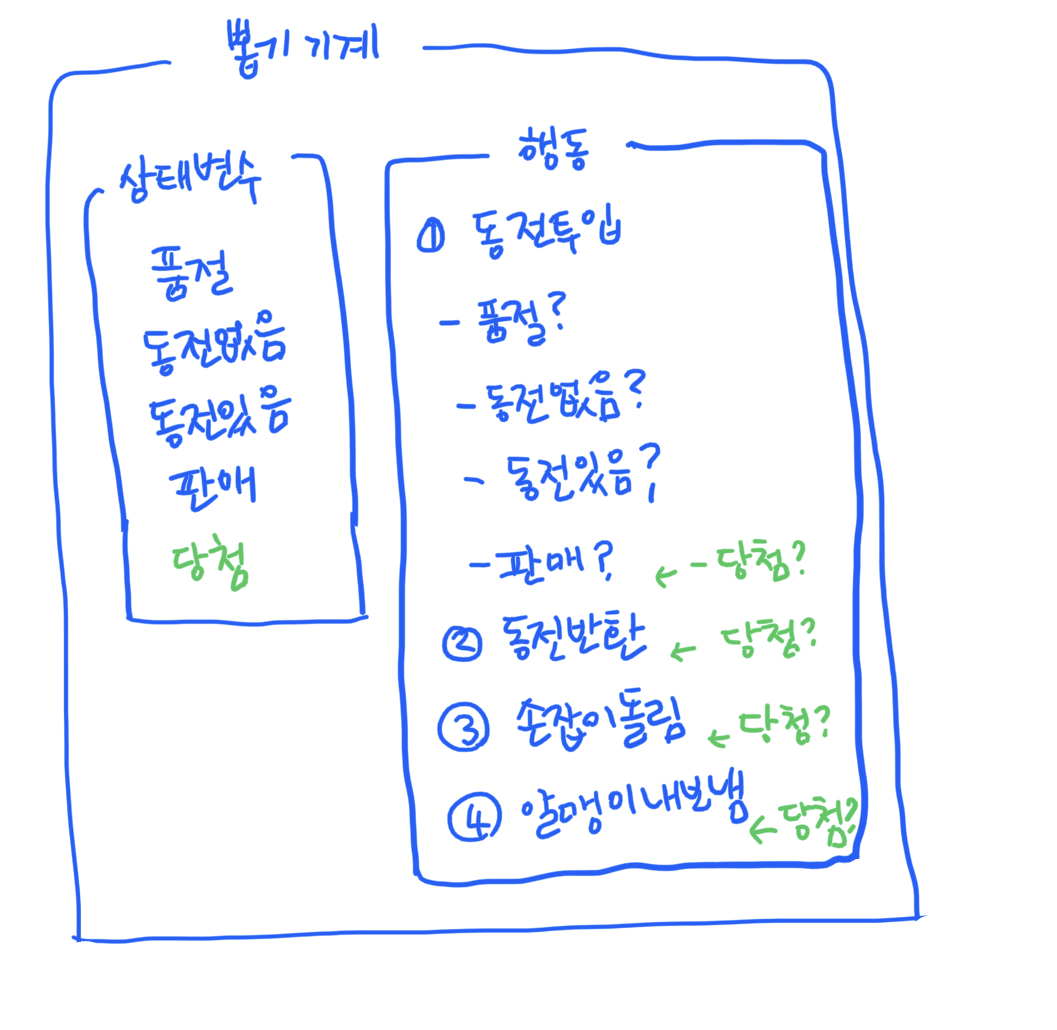 뽑기 기계
상태변수
품절
동전없음
동전있음
판매
당첨
행동
① 동전투입
- 품절?
- 동전없음?
- 동전있음?
- 판매? ← - 당첨?
② 동전반환 ← 당첨?
③ 손잡이돌림 ← 당첨?
④ 알맹이내보냄 ← 당첨?